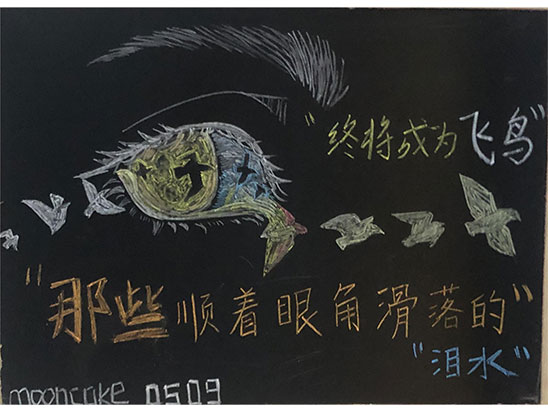 "终将成为飞鸟"
"那些顺着眼角滑落的"
"泪水"
mooncake 0509